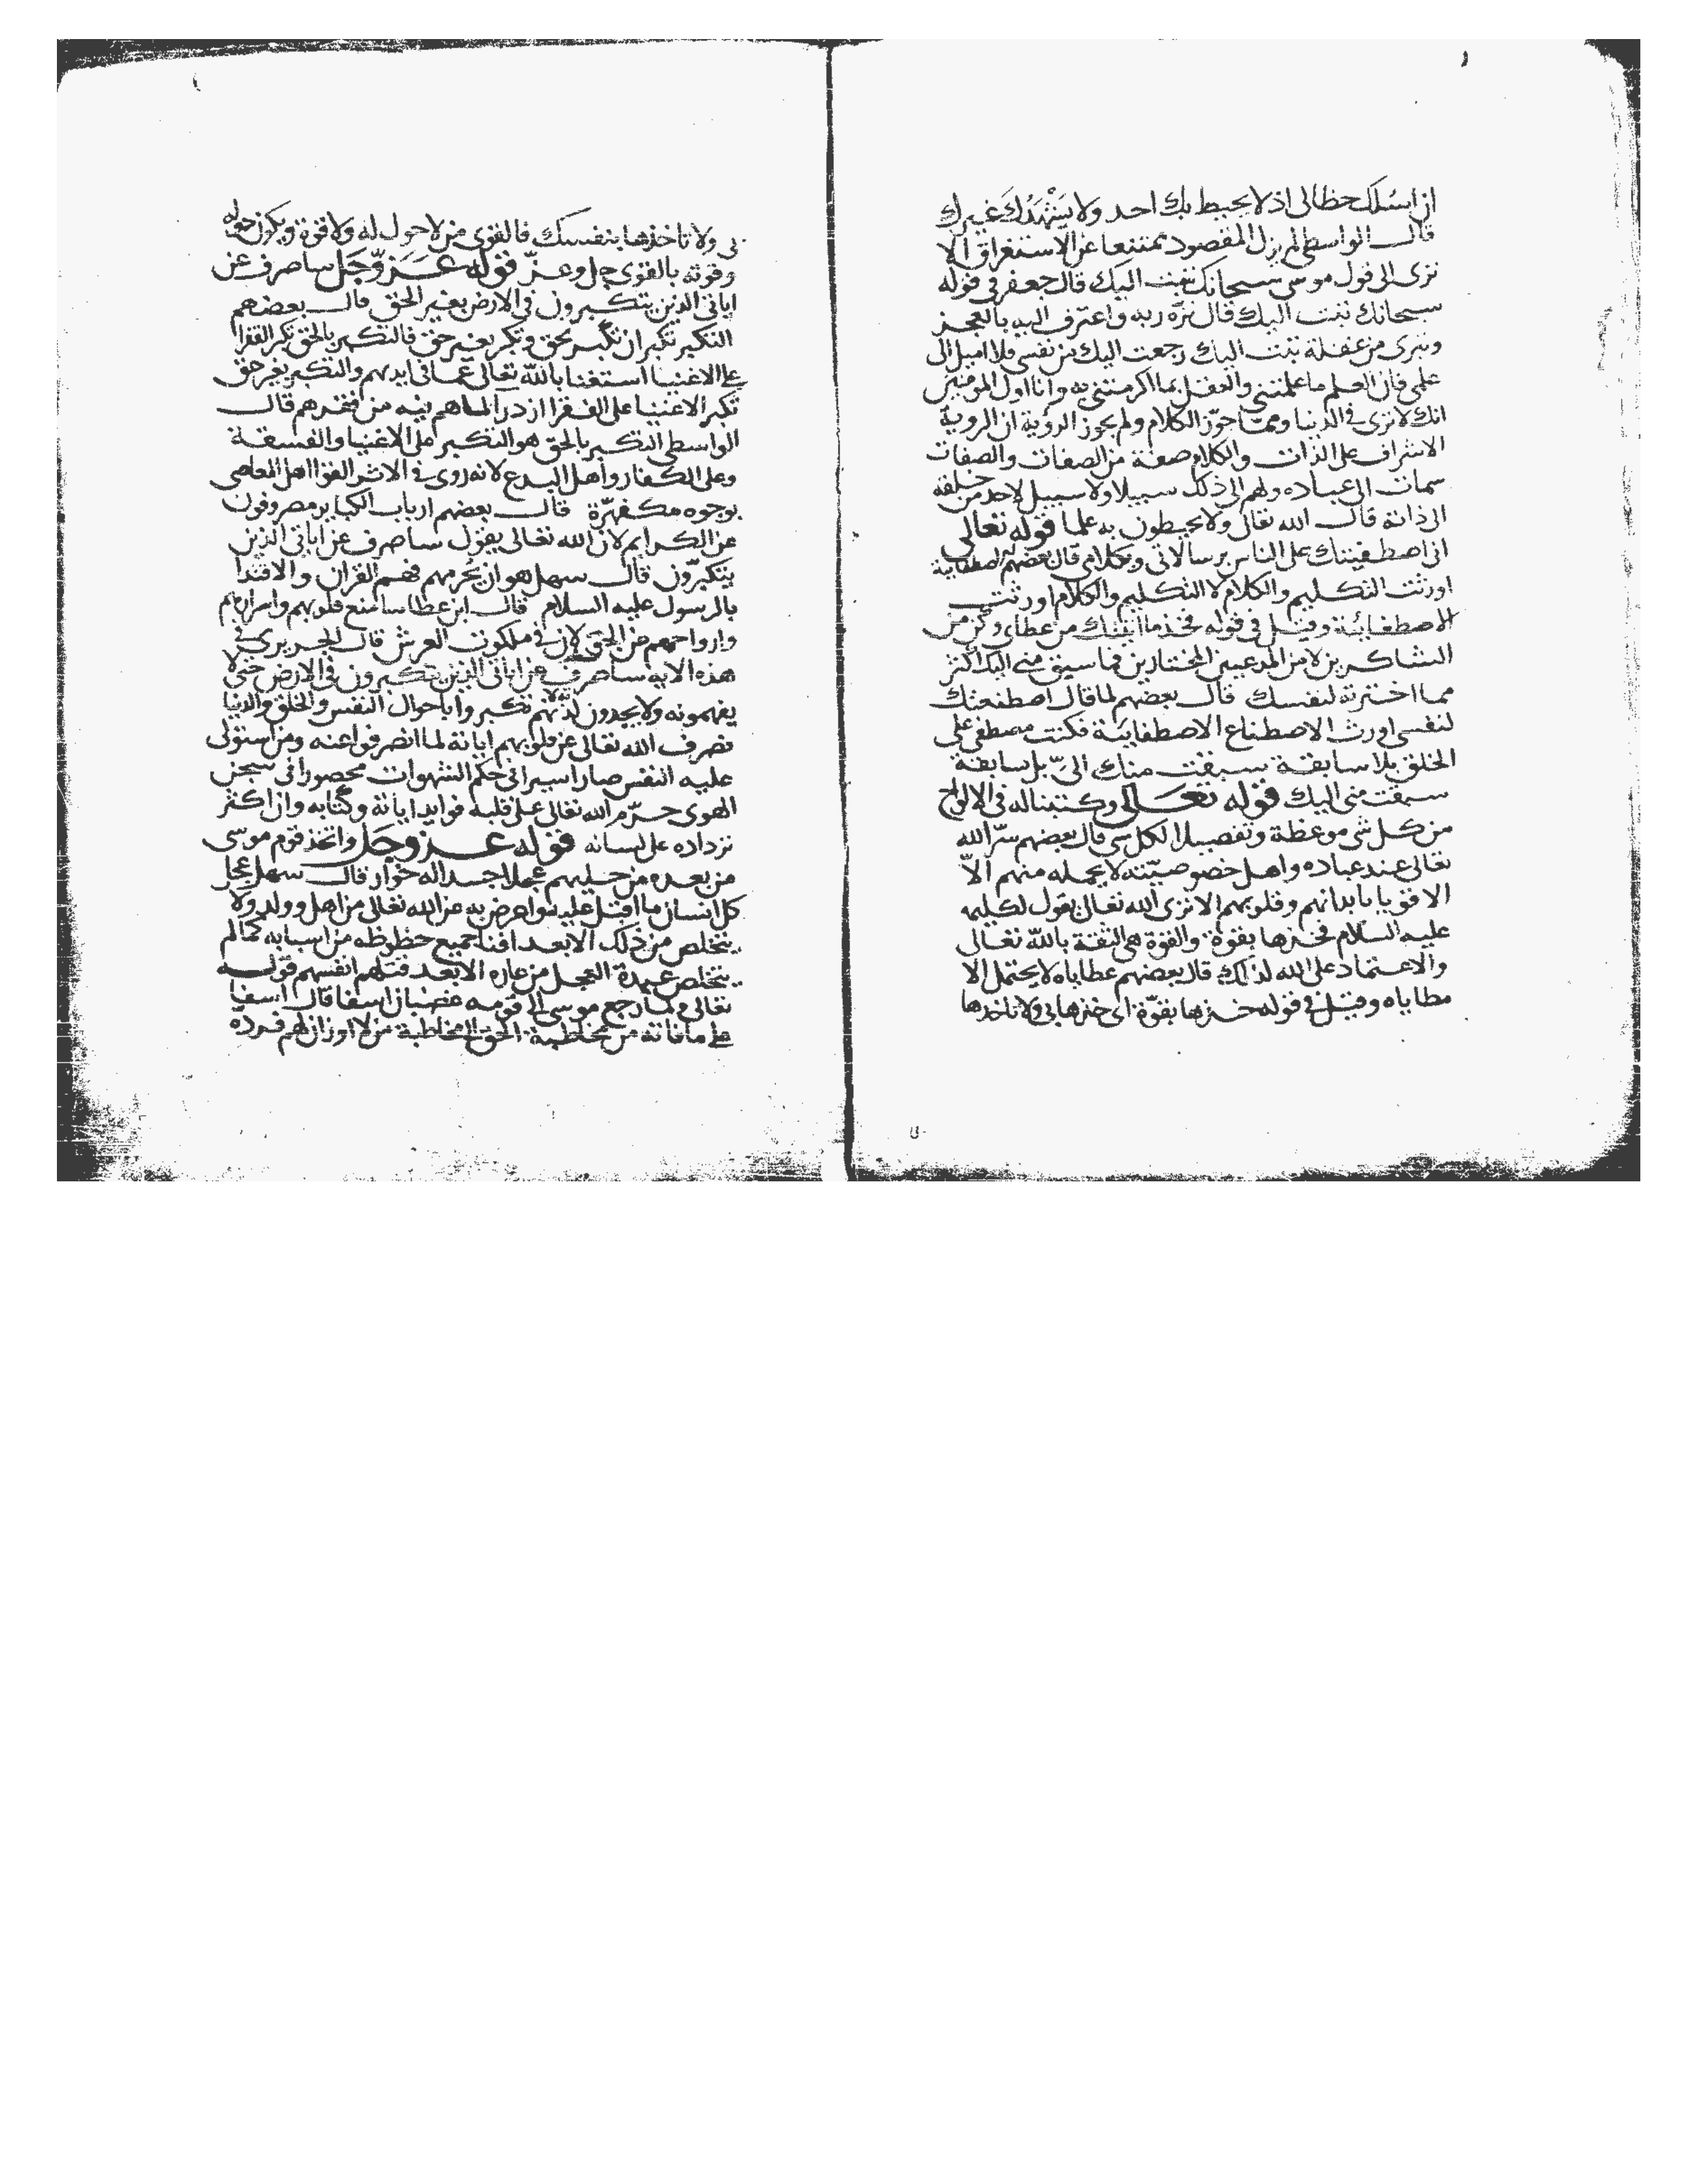 ان اسئلك حظا لى اذ لا يحيط بك احد ولا يشهدك غيرك
قال الواسطى لم يزل المقصود ممتنعا عن الاستغراق الا
ترى الى قول موسى سبحانك تبت اليك قال جعفر فى قوله
سبحانك تبت اليك قال نزه ربه واعترف اليه بالعجز
وتبرى من عقله تبت اليك رجعت اليك من نفسى فلا اميل الى
علمى فان العلم ما علمتنى والعقل بما اكرمتنى به وانا اول المومنين
انك لا ترى فى الدنيا ومما جوّز الكلام ولم يجوز الرؤية ان الروية
الاشراف على الذات والكلام صفة من الصفات والصفات
سمات الى عباده ولهم الى ذلك سبيلا ولا سبيل لاحد من خلقه
الى ذاته قال الله تعالى ولا يحيطون به علما قوله تعالى
انى اصطفيتك على الناس برسالاتى وبكلامى قال بعضهم اصطفايية
اورثت التكليم والكلام لا التكليم والكلام اورثت
الاصطفائية وقيل فى قوله فخذ ما اتيتك من عطاى وكن من
الشاكرين لا من المدعين المختارين فما سبق منى اليك اكثر
مما اخترته لنفسك قال بعضهم لما قال اصطنعتك
لنفسى اورث الاصطناع الاصطفاييّة فكنت مصطفى على
الخلق بلا سابقة سبقت منك الىّ بل سابقة
سبقت منى اليك قوله تعالى وكتبنا له فى الالواح
من كل شى موعظة وتفصيلا لكل شى قال بعضهم سرّ الله
تعالى عند عباده واهل خصوصيّته لا يحمله منهم الّا
الاقويا بابدانهم وقلوبهم الا ترى الله تعالى يقول لكليمه
عليه السلام فخذها بقوة والقوة هى الثقة بالله تعالى
والاعتماد على الله لذلك قال بعضهم عطاياه لا يحتمل الا
مطاياه وقيل فى قوله خذها بقوّة اى خذها بى ولا تاخذها
بى ولا تاخذها بنفسك فالقوى من لا حول له ولا قوة ويكون حوله
وقوته بالقوى جل وعزّ قوله عَزّ وَجَل ساصرف عن
اياتى الذين يتكبرون فى الارض بغير الحق قال بعضهم
التكبر تكبران تكبر بحق وتكبر بغير حق فالتكبر بالحق تكبر الفقرا
على الاغنيا استغنا بالله تعالى عما فى ايديهم والتكبر بغير حق
تكبر الاغنيا على الفقرا ازدرا لما هم فيه من فقرهم قال
الواسطى التكبر بالحق هو التكبر على الاغنيا والفسقة
وعلى الكفار واهل البدع لانه روى فى الاثر القوا اهل المعاصى
بوجوه مكفهرّة قال بعضهم ارباب الكباير مصروفون
عن الكرايم لان الله تعالى يقول ساصرف عن اياتى الذين
يتكبّرون قال سهل هو ان يُحرمهم فهم القران والاقتدا
بالرسول عليه السلام قال ابن عطا سامنع قلوبهم واسرارهم
وارواحهم عن الحق لان فى ملكوت العرش قال الجريرى فى
هذه الاية ساصرف عن اياتى الذين يتكبرون فى الارض حتى لا
يفهمونه ولا يجدون له لذة لانهم تكبروا باحوال النفس والخلق والدنيا
فصرف الله تعالى عن قلوبهم اياته لما انصرفوا عنه ومن استولى
عليه النفس صار اسيرا فى حكم الشهوات محصورا فى سجن
الهوى حرّم الله تعالى على قلبه فوايد اياته وكتابه وان اكثر
ترداده على لسانه قوله عز وجَل واتخذ قوم موسى
من بعده من حليهم عجلا جسدا له خوار قال سهل عجل
كل انسان ما اقبل عليه واعرض به عن الله تعالى من اهل وولد ولا
يتخلص من ذلك الا بعد افنا جميع حظوظه من اسبابه كما لم
يتخلص عبدة العجل من عاره الا بعد قتلهم انفسهم قوله
تعالى ولما رجع موسى الى قومه غضبان اسفا قال اسفا
على ما فاته من مخاطبة الحق الى مخاطبة من لا اوزان لهم فردّه